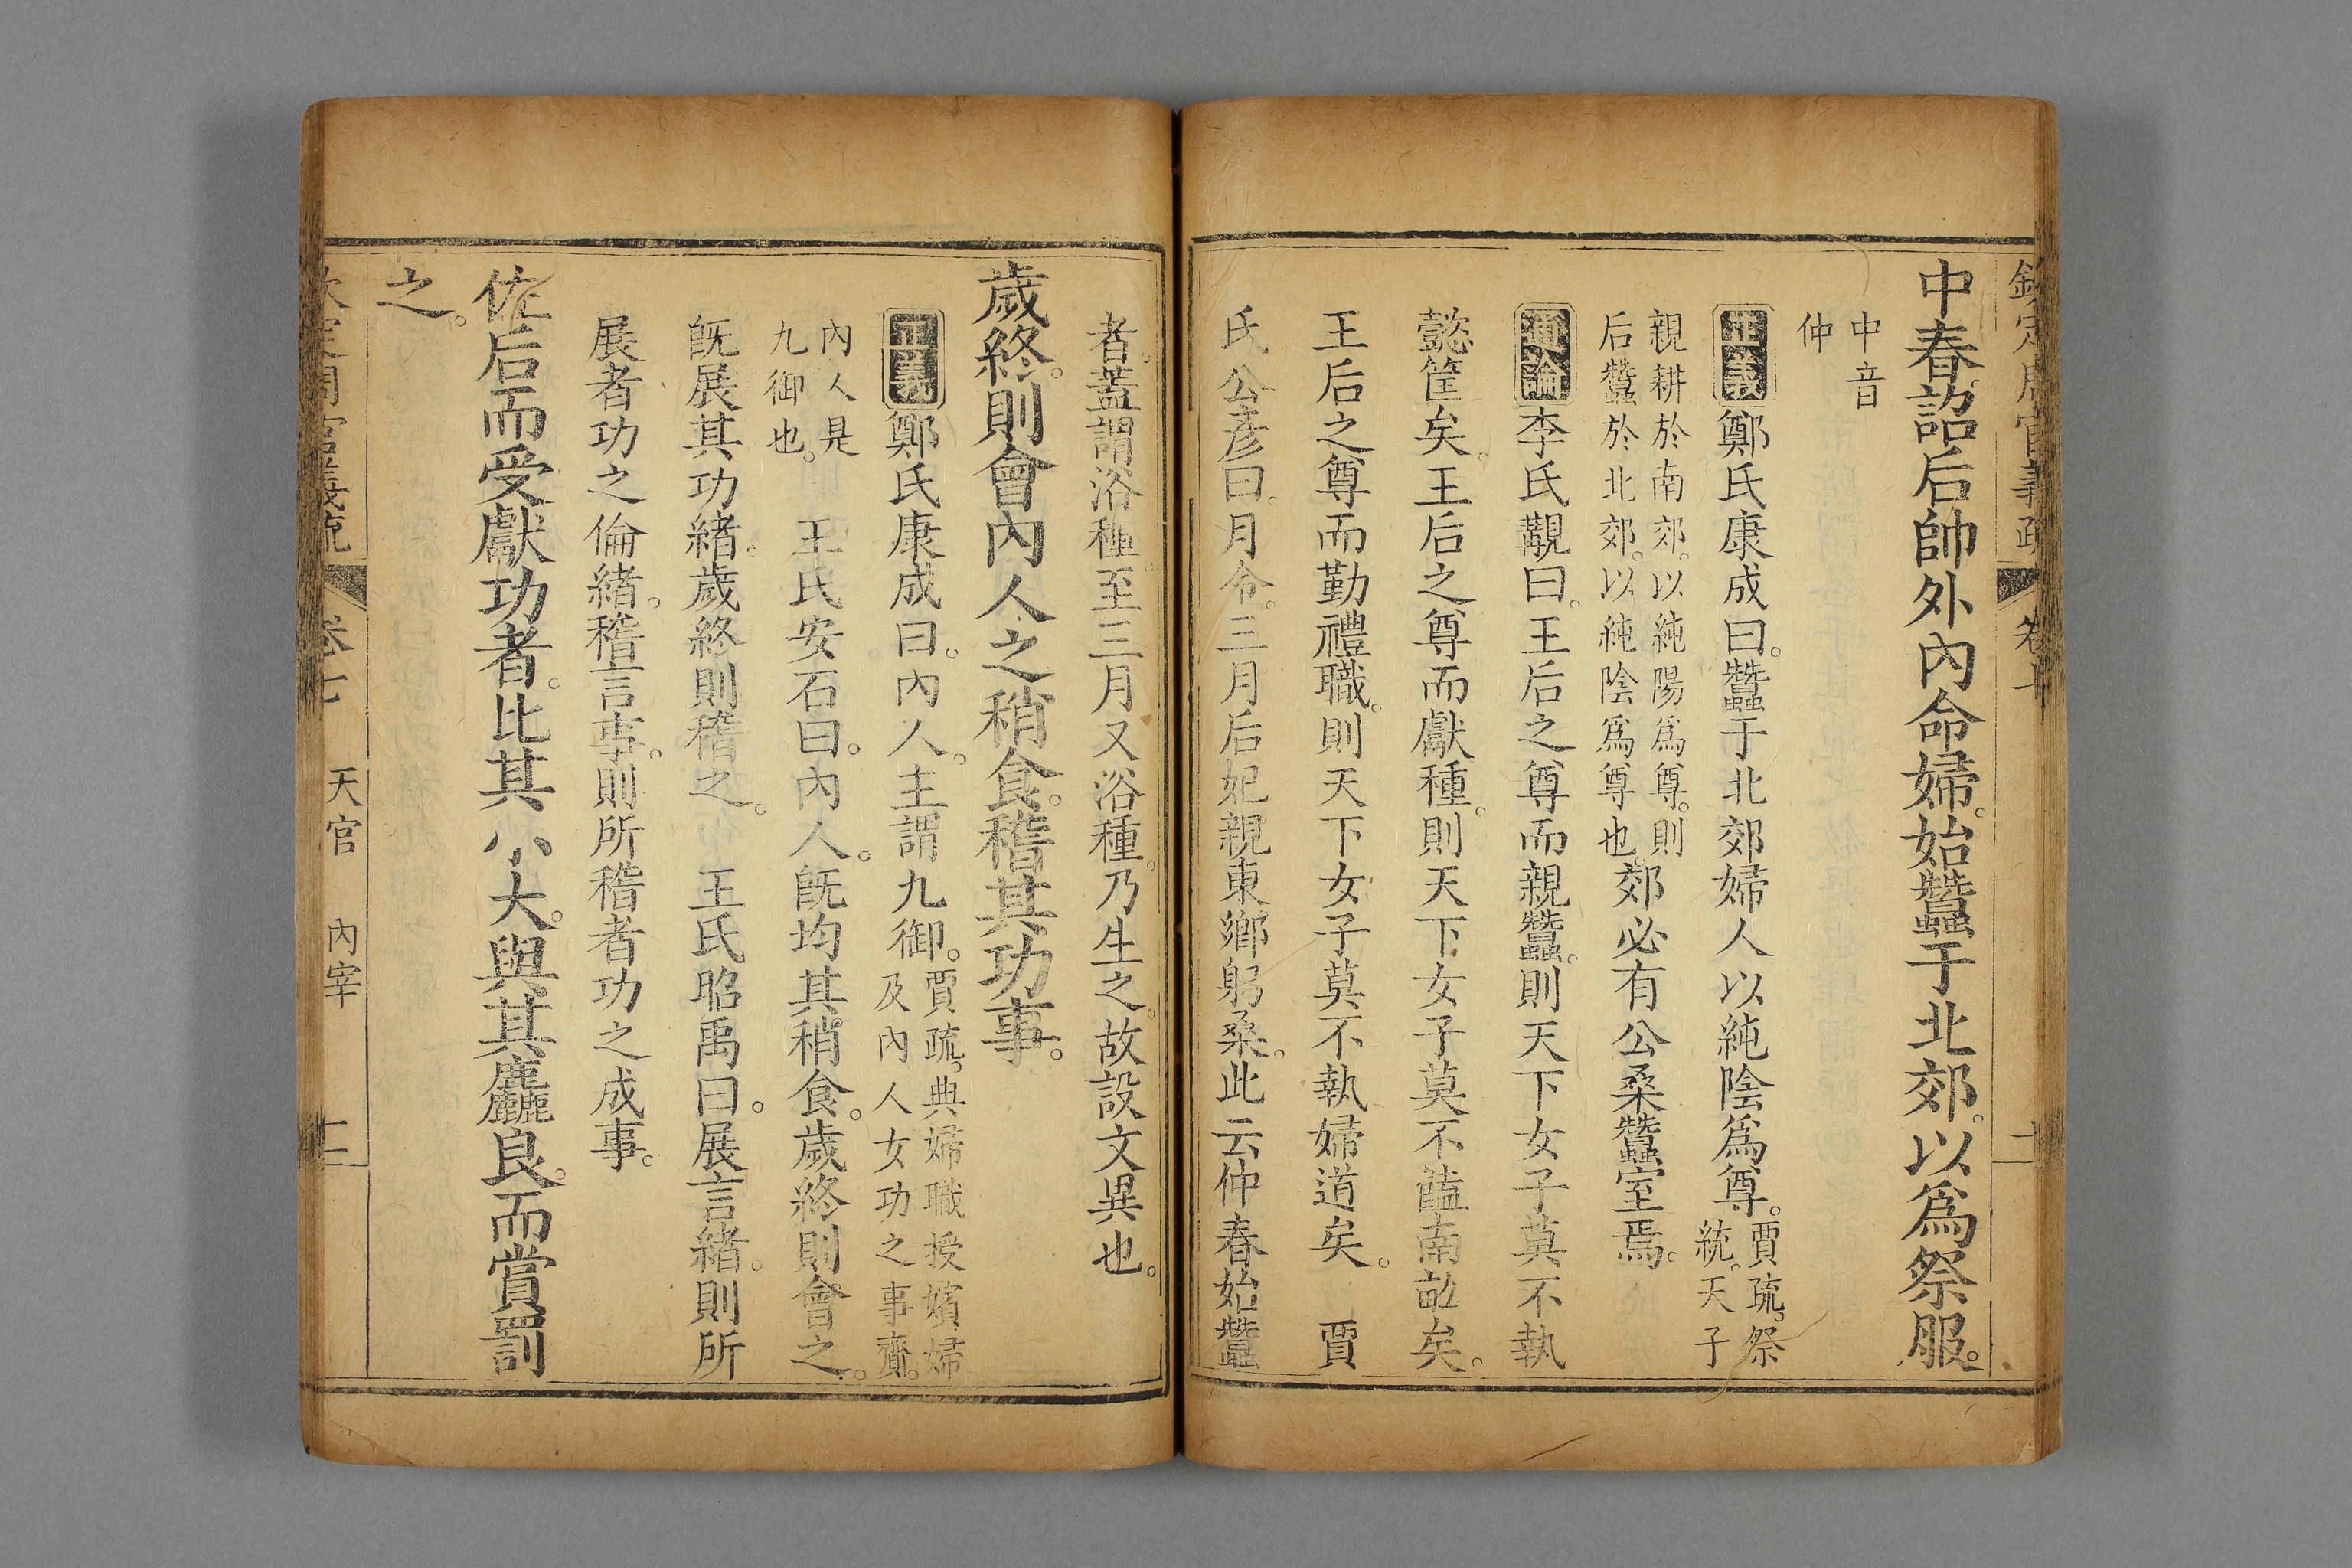 欽定周官義疏 卷七
中春詔后帥外內命婦。始蠶于北郊。以爲祭服。
中音
仲
正義鄭氏康成曰。蠶于北郊婦人以純陰爲尊。賈疏。祭
統。天子
親耕於南郊。以純陽爲尊。則
后蠶於北郊。以純陰爲尊也。郊必有公桑蠶室焉。
通論李氏觀曰。王后之尊而親蠶。則天下女子莫不執
懿筐矣。王后之尊而獻種。則天下女子莫不饁南畝矣。
王后之尊而勤禮職。則天下女子莫不執婦道矣。 賈
氏公彥曰。月令。三月后妃親東鄉躬桑。此云仲春始蠶
者。蓋謂浴種至三月又浴種。乃生之。故設文異也。
歲終。則會內人之稍食。稽其功事。
正義鄭氏康成曰。內人。主謂九御。賈疏。典婦職授嬪婦
及內人女功之事齎。
內人是
九御也。 王氏安石曰。內人。旣均其稍食。歲終則會之。
旣展其功緒。歲終則稽之。 王氏昭禹曰。展言緒。則所
展者功之倫緒。稽言事。則所稽者功之成事。
佐后而受獻功者。比其小大。與其麤良。而賞罰
之。
欽定周官義疏 卷七 天官 內宰